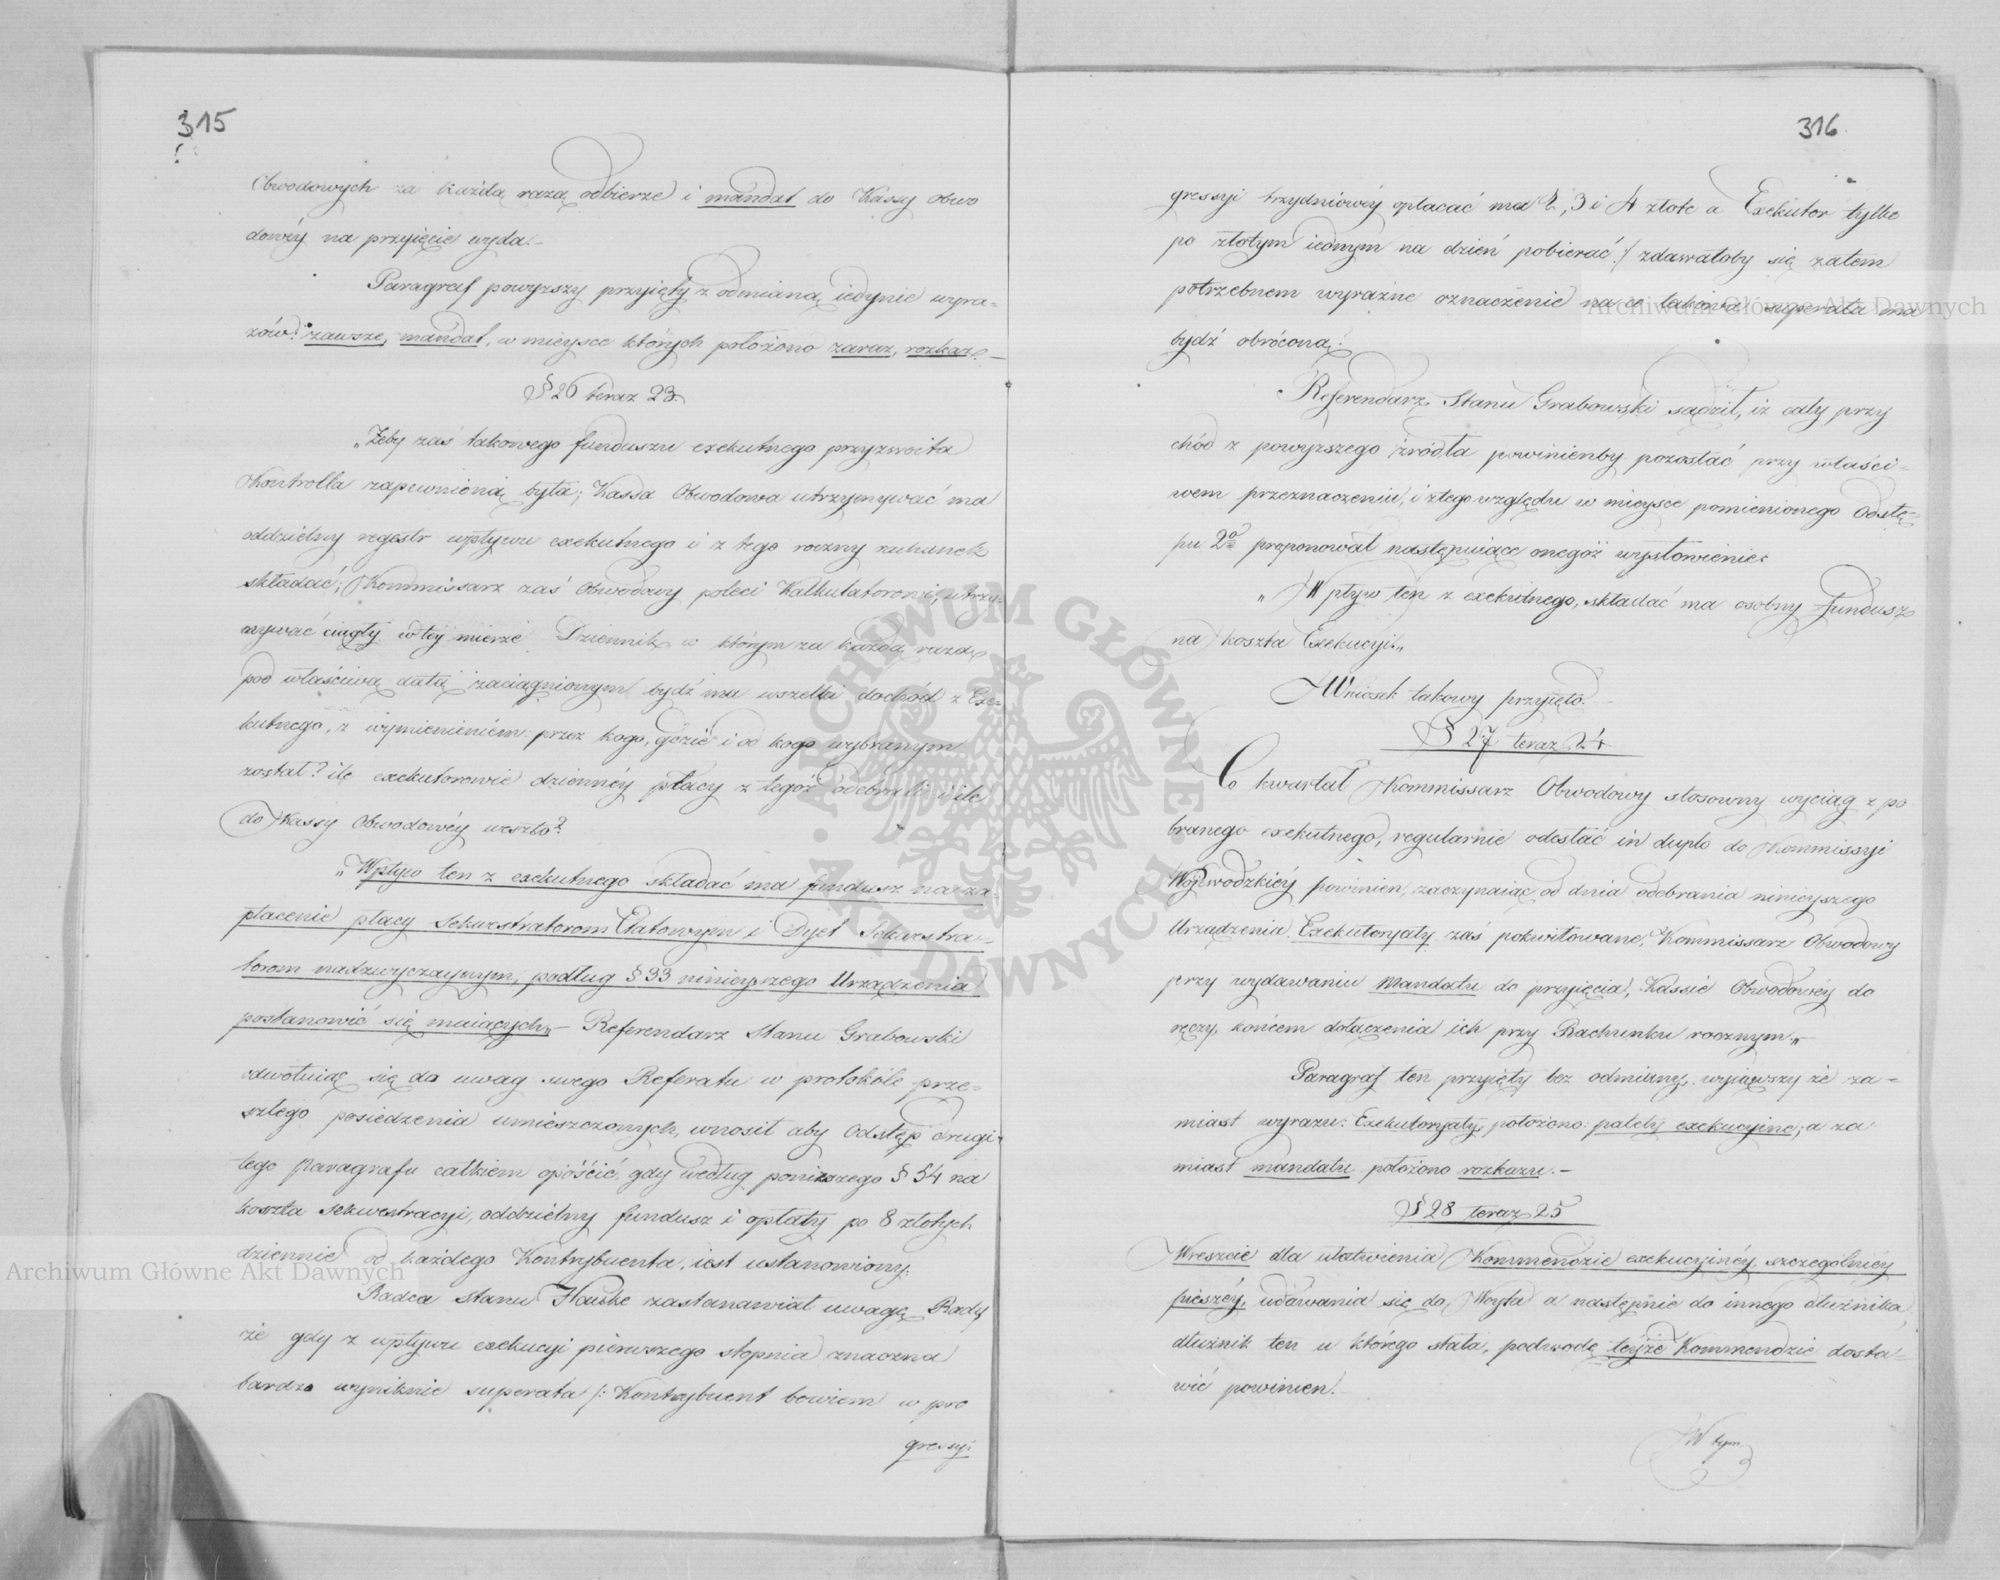 315
Obwodowych za każdą razą odbierze i mandat do Kassy obwo
dowéy na przyięcie wyda.
Paragraf powyższy przyięty z odmianą iedynie wyra-
zów: zawsze, mandat, w mieysce których położono zaraz, rozkaz.-
§ 26 teraz 23.
„Żeby zaś takowego funduszu exekutnego przyzwoita
Kontrolla zapewnioną była; Kassa Obwodowa utrzymywać ma
oddzielny regestr wpływu exekutnego i z tego roczny rachunek
składać; Kommissarz zaś Obwodowy poleci Kalkulatorowi, utrzy-
mywać ciągły w téy mierze Dziennik w którym za każdą razą
pod właściwą datą zaciągnionym bydź ma wszelki dochód z Exe-
kutnego, z wymienieniem: przez kogo, gdzie i od kogo wybranym
został? ile exekutorowie dziennéy płacy z tegóż odebrali i ile
do Kassy Obwodowéy weszło?
„Wpływ ten z exekutnego składać ma fundusz na za-
płacenie płacy Sekwestratorom Etatowym i Dyet Sekwestra-
torom nadzwyczaynym, podług § 33 ninieyszego Urządzenia
postanowić się maiących„- Referendarz Stanu Grabowski
odwołuiąc się do uwag swego Referatu w protokóle prze-
szłego posiedzenia umieszczonych, wnosił aby Odstęp drugi
tego Paragrafu całkiem opóścić, gdy według poniższego § 54 na
koszta Sekwestracyi, oddzielny fundusz i opłaty po 8 złotych
dziennie od każdego Kontrybuenta, iest ustanowiony.
Radca Stanu Hauke zastanawiał uwagę Rady
że gdy z wpływu exekucyi pierwszego stopnia znaczna
bardzo wyniknie superata /: Kontrybuent bowiem w pro
gressyi
316
gressyi trzydniowéy opłacać ma 2, 3 i 4 złote a Exekutor tylko
po złotym iednym na dzień pobierać :/ zdawałoby się zatem
potrzebnem wyraźne oznaczenie na co takowa superata ma
bydź obróconą.
Referendarz Stanu Grabowski sądził, iż cały przy
chód z powyższego źródła powinienby pozostać przy właści-
wem przeznaczeniu, i z tego względu w mieysce pomienionego Odstę-
pu 2o proponował następuiące onegóż wysłowienie:
„Wpływ ten z exekutnego, składać ma osobny fundusz
na koszta Exekucyi.„
Wniosek takowy przyięto.
§ 27 teraz 24
Co kwartał Kommissarz Obwodowy stosowny wyciąg z po
branego exekutnego, regularnie odesłać in duplo do Kommissyi
Wojewodzkiéy powinien, zaczynaiąc od dnia odebrania ninieyszego
Urządzenia. Exekutoryały zaś pokwitowane, Kommissarz Obwodowy
przy wydawaniu Mandatu do przyięcia, Kassie Obwodowéy do
ręczy, końcem dołączenia ich przy Rachunku rocznym.„-
Paragraf ten przyięty bez odmiany, wyiąwszy że za-
miast wyrazu: Exekutoryały, położono: palety exekucyine; a za
miast mandatu położono rozkazu.-
§ 28 teraz 25
Wreszcie dla ułatwienia Kommendzie exekucyinéy, szczególniéy
pieszéy, udawania się do Woyta a następnie do innego dłużnika
dłużnik ten u którego stała, podwodę téyże Kommendzie dosta-
wić powinien.
W tym
Archiwum Główne Akt Dawnych
Archiwum Główne Akt Dawnych
ARCHIWUM GŁÓWNE AKT DAWNYCH